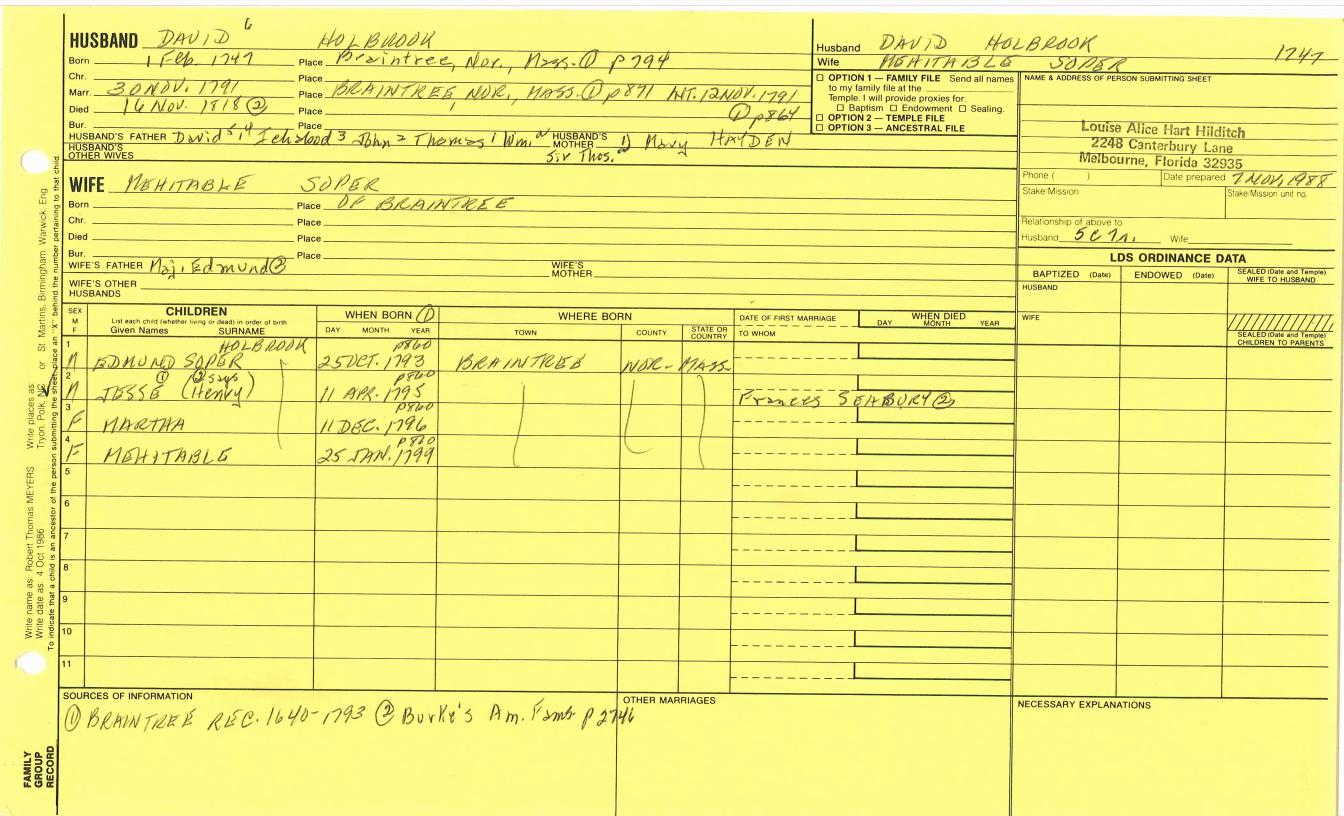 HUSBAND DAVID 6 HOLBROOK
Born 1 Feb. 1747 Place Braintree, Nor., Mass. ① p 794
Chr. Place
Marr. 30 NOV. 1791 Place BRAINTREE, NOR., MASS. ① p 871 INT. 12 NOV. 1791
Died 16 Nov. 1818 ② Place ① p 864
Bur. Place
HUSBAND'S FATHER David 5,4 Ichabod 3 John 2 Thomas 1 Wm. HUSBAND'S MOTHER 1) Mary HAYDEN
Sir Thos.
HUSBAND'S OTHER WIVES
Husband DAVID HOLBROOK 1747
Wife MEHITABLE SOPER
☐ OPTION 1 — FAMILY FILE Send all names
to my family file at the
Temple. I will provide proxies for
☐ Baptism ☐ Endowment ☐ Sealing.
☐ OPTION 2 — TEMPLE FILE
☐ OPTION 3 — ANCESTRAL FILE
NAME & ADDRESS OF PERSON SUBMITTING SHEET
Louise Alice Hart Hilditch
2248 Canterbury Lane
Melbourne, Florida 32935
Phone ( ) Date prepared 7 NOV, 1988
Stake/Mission Stake/Mission unit no.
Relationship of above to
Husband 5C 7r. Wife
WIFE MEHITABLE SOPER
Born Place OF BRAINTREE
Chr. Place
Died Place
Bur. Place
WIFE'S FATHER Maj. Edmund ② WIFE'S MOTHER
WIFE'S OTHER HUSBANDS
LDS ORDINANCE DATA
BAPTIZED (Date) ENDOWED (Date) SEALED (Date and Temple) WIFE TO HUSBAND
HUSBAND
WIFE
SEALED (Date and Temple) CHILDREN TO PARENTS
SEX M F CHILDREN WHEN BORN ① WHERE BORN DATE OF FIRST MARRIAGE WHEN DIED
List each child (whether living or dead) in order of birth
Given Names SURNAME DAY MONTH YEAR TOWN COUNTY STATE OR COUNTRY TO WHOM DAY MONTH YEAR
1 HOLBROOK p860
M EDMUND SOPER 25 OCT. 1793 BRAINTREE NOR- MASS
2 ① ② says p860
M JESSE (Henry) 11 APR. 1795 Frances SEABURY ②
3 p860
F MARTHA 11 DEC. 1796
4 p860
F MEHITABLE 25 JAN. 1799
5
6
7
8
9
10
11
SOURCES OF INFORMATION
① BRAINTREE REC. 1640-1793 ② Burke's Am. Fams p 2746
OTHER MARRIAGES
NECESSARY EXPLANATIONS
Write name as: Robert Thomas MEYERS Write places as: St. Martins, Birmingham, Warwick, Eng.
Write date as: 4 Oct 1986 Tryon, Polk, NC or
To indicate that a child is an ancestor of the person submitting the sheet, place an "X" behind the number pertaining to that child.
FAMILY
GROUP
RECORD